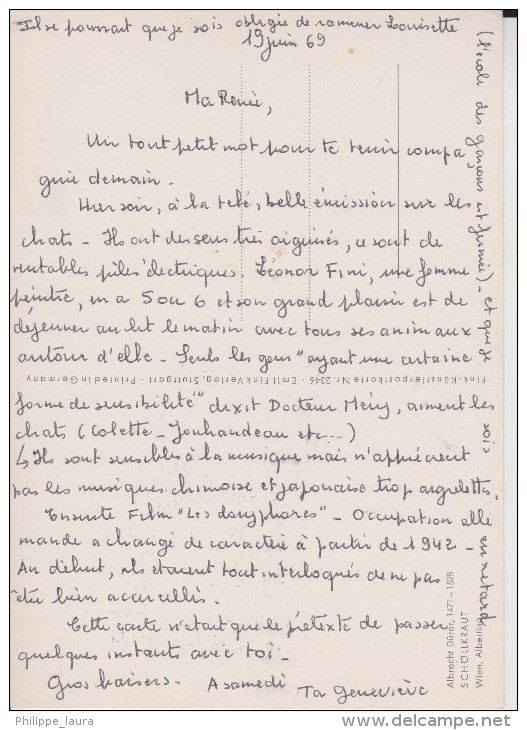 Il se pourrait que je sois obligée de ramener Louisette
(l'école des garçons est fermée) - et que je sois en retard
19 juin 69
Ma Renée,
Un tout petit mot pour te tenir compa
gnie demain.
Hier soir, à la télé, belle émission sur les
chats - Ils ont des sens très aiguisés, ce sont de
véritables piles électriques. Léonor Fini, une femme
peintre, en a 5 ou 6 et son grand plaisir est de
déjeuner au lit le matin avec tous ses animaux
autour d'elle - Seuls les gens "ayant une certaine
Fink-Künstlerpostkarte Nr. 2346 · Emil Fink Verlag, Stuttgart · Printed in Germany
forme de sensibilité" dixit Docteur Méry, aiment les
chats (Colette - Jouhandeau etc...)
↳ Ils sont sensibles à la musique mais n'apprécient
pas les musiques chinoise et japonaise trop aigrelettes.
Ensuite Film "Les doryphores" - Occupation alle
mande a changé de caractère à partir de 1942 -
Au début, ils étaient tout interloqués de ne pas
être bien accueillis.
Cette carte n'était que le prétexte de passer
quelques instants avec toi -
Gros baisers - A samedi
Ta Geneviève
Albrecht Dürer, 1471 – 1528
SCHÖLLKRAUT
Wien, Albertina
Philippe_laura
delcampe.net